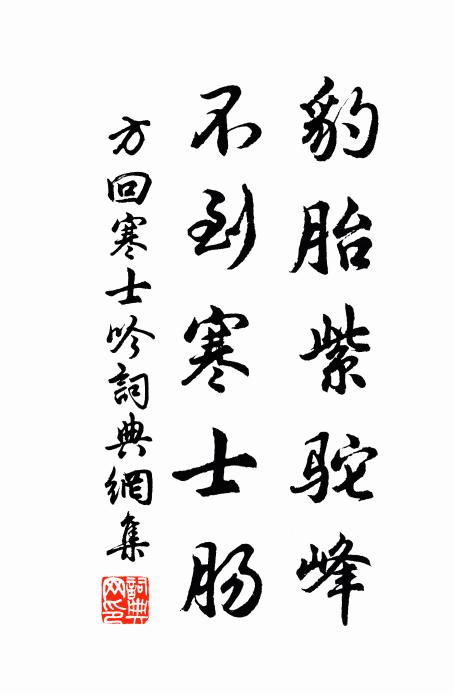 豹胎紫驼峰
不到寒士肠
方回寒士吟詞典網集
詞典网印